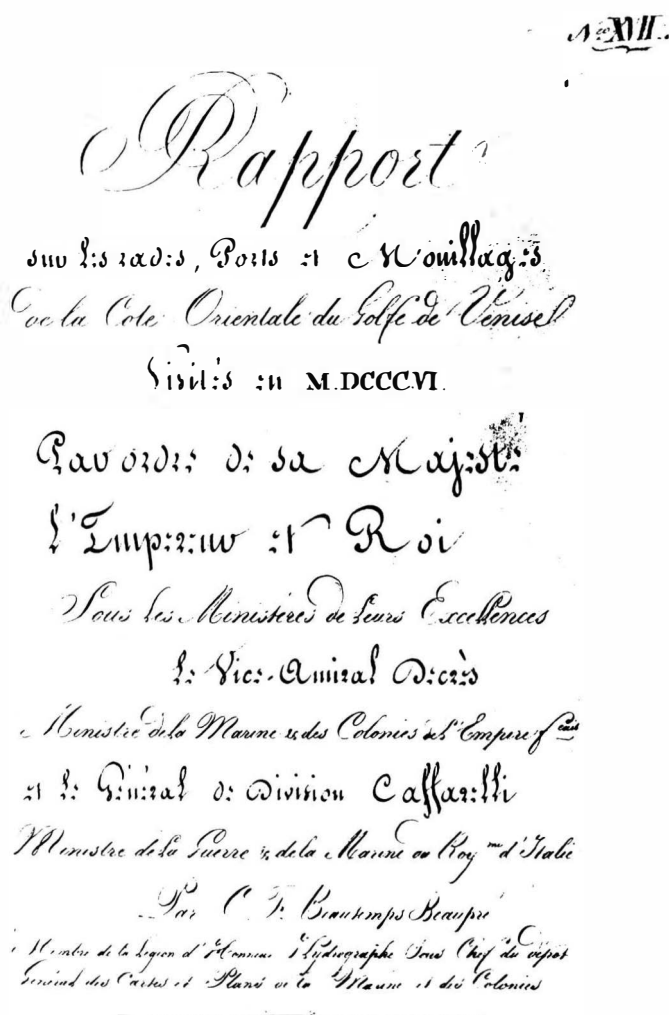 Nº XVII.
Rapport
sur les rades, Ports et Mouillages
de la Cote Orientale du Golfe de Venise
Visités en M.DCCCVI.
Par ordre de sa Majesté
l'Empereur et Roi
Sous les Ministères de leurs Excellences
le Vice-Amiral Decrès
Ministre de la Marine & des Colonies de l'Empire fçais
et le Général de Division Caffarelli
Ministre de la Guerre & de la Marine du Roy.me d'Italie
Par C. F. Beautemps Beaupré
Membre de la Légion d'Honneur Hydrographe Sous Chef du dépot
Général des Cartes et Plans de la Marine et des Colonies